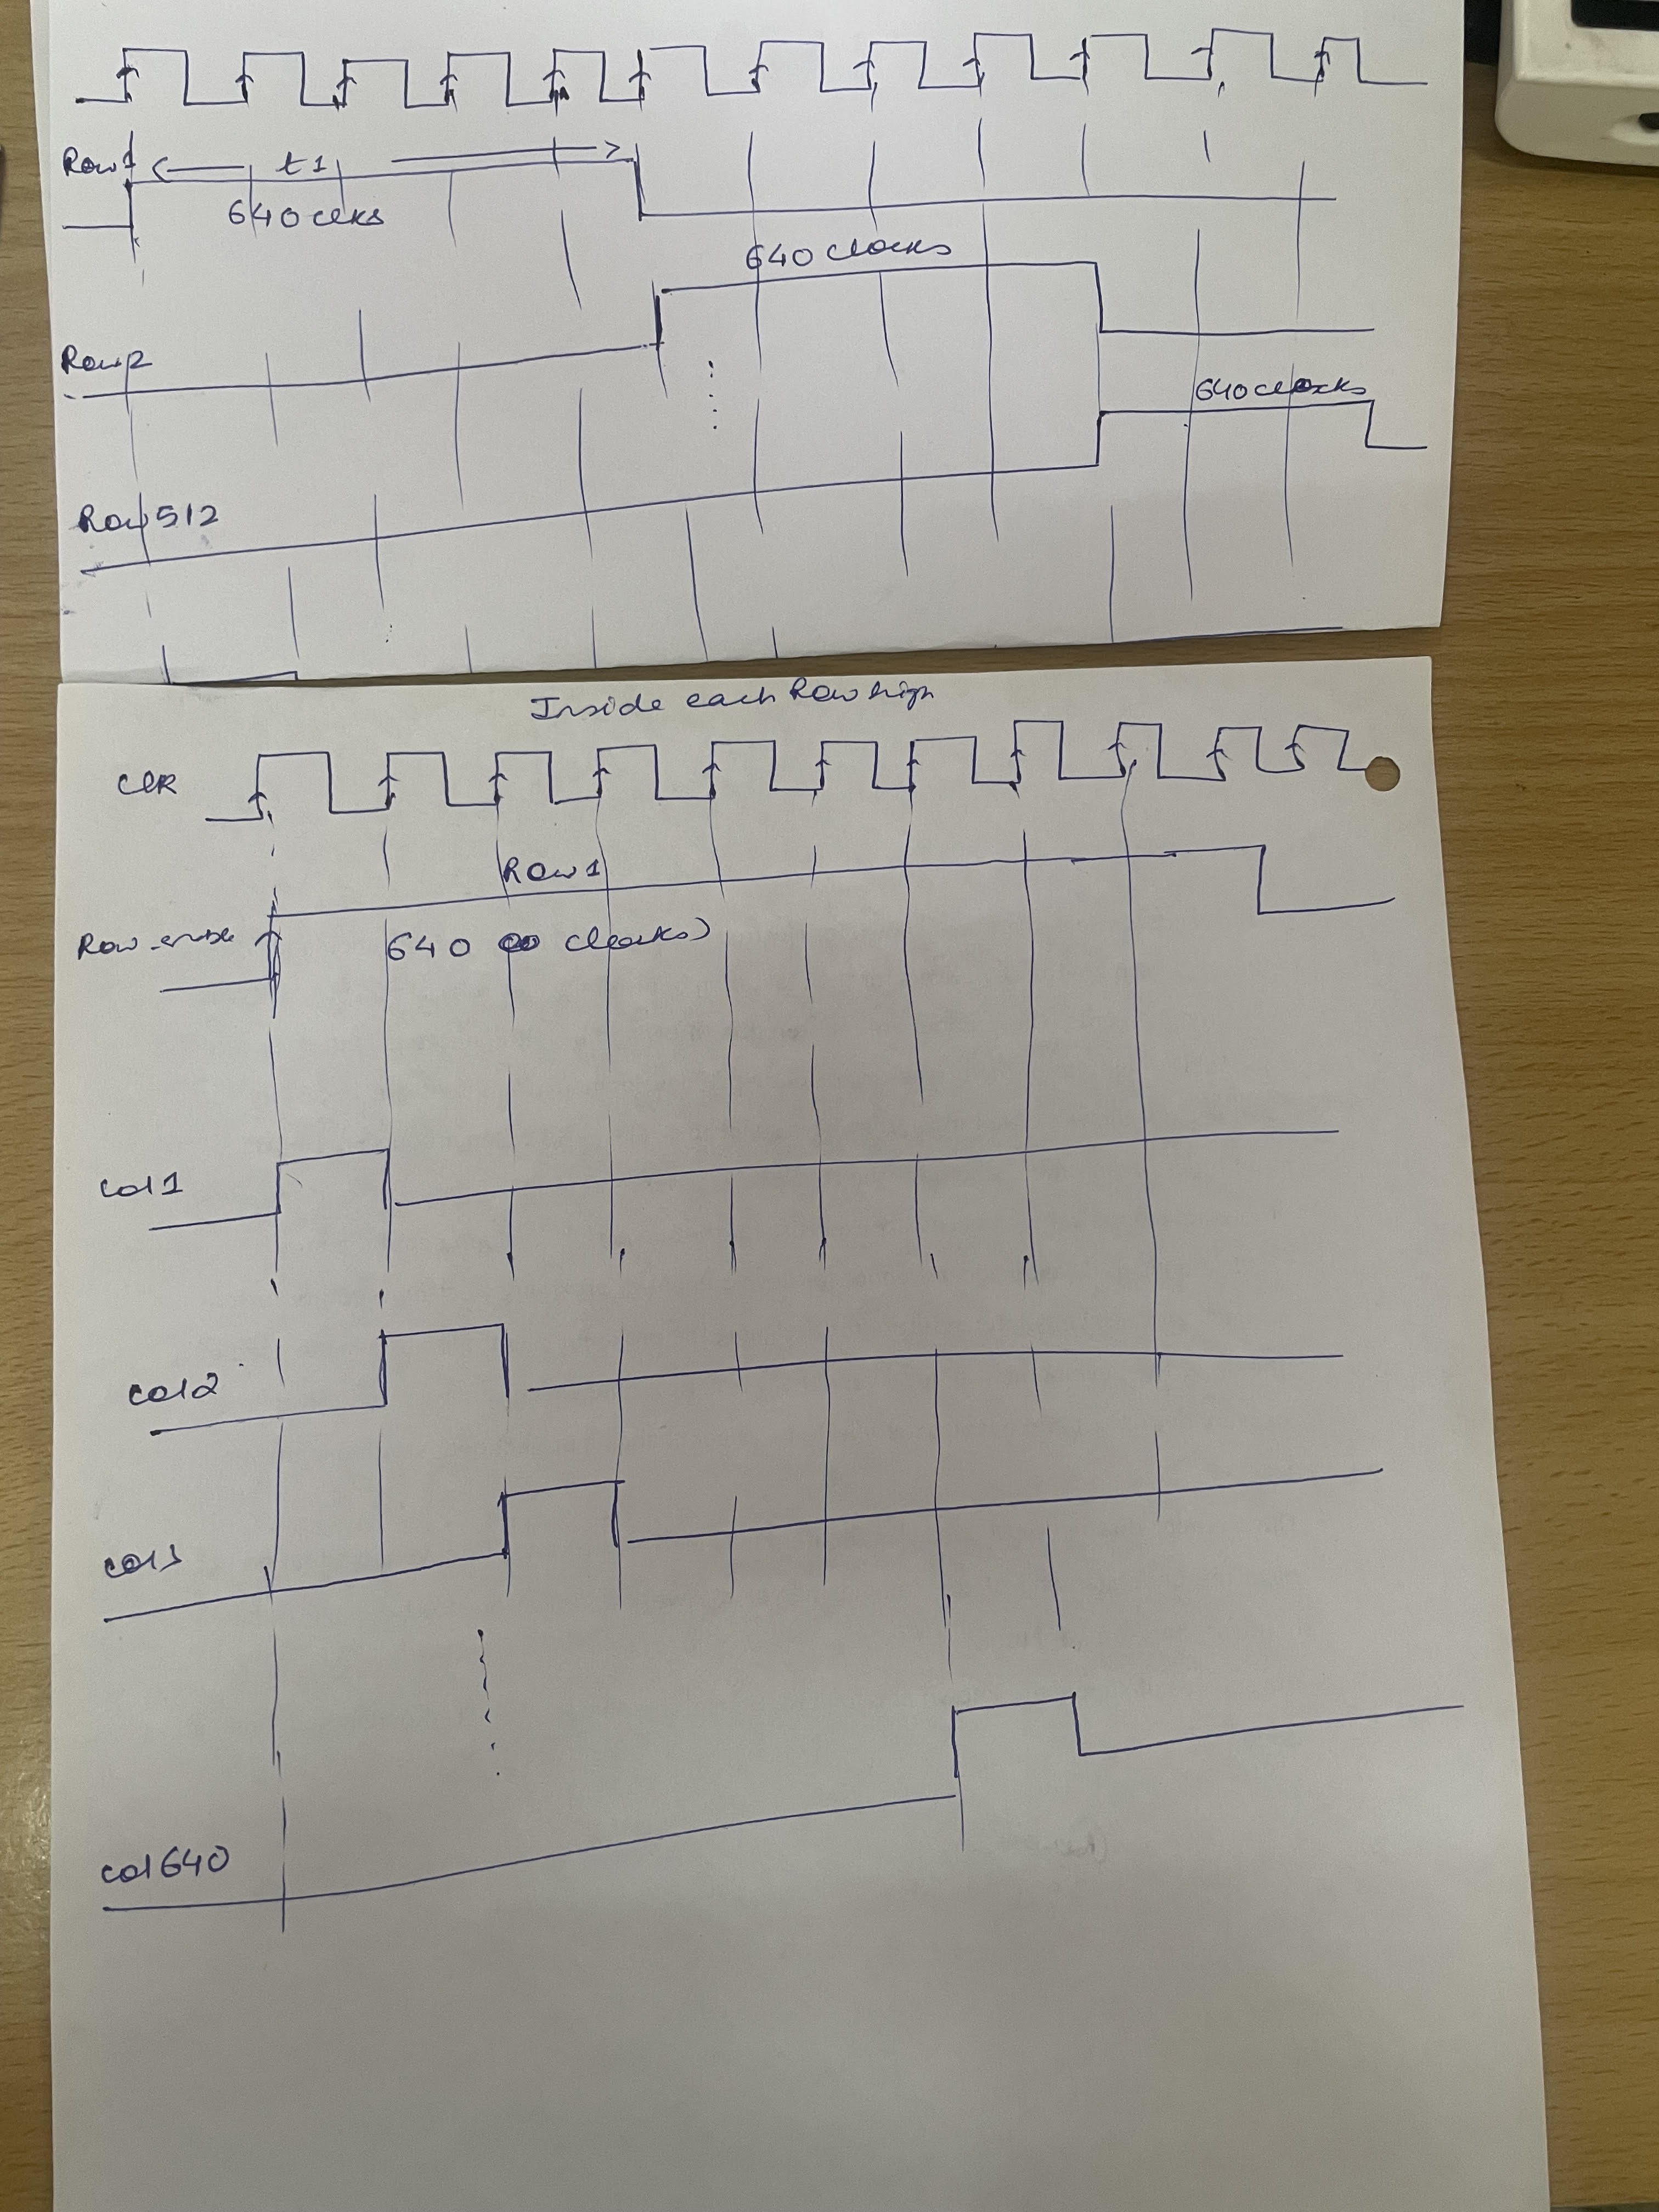 Row1
t1
640 clks
640 clocks
Row2
640 clocks
Row 512
Inside each Row high
Clk
Row1
640 clocks)
col1
col2
col3
col640